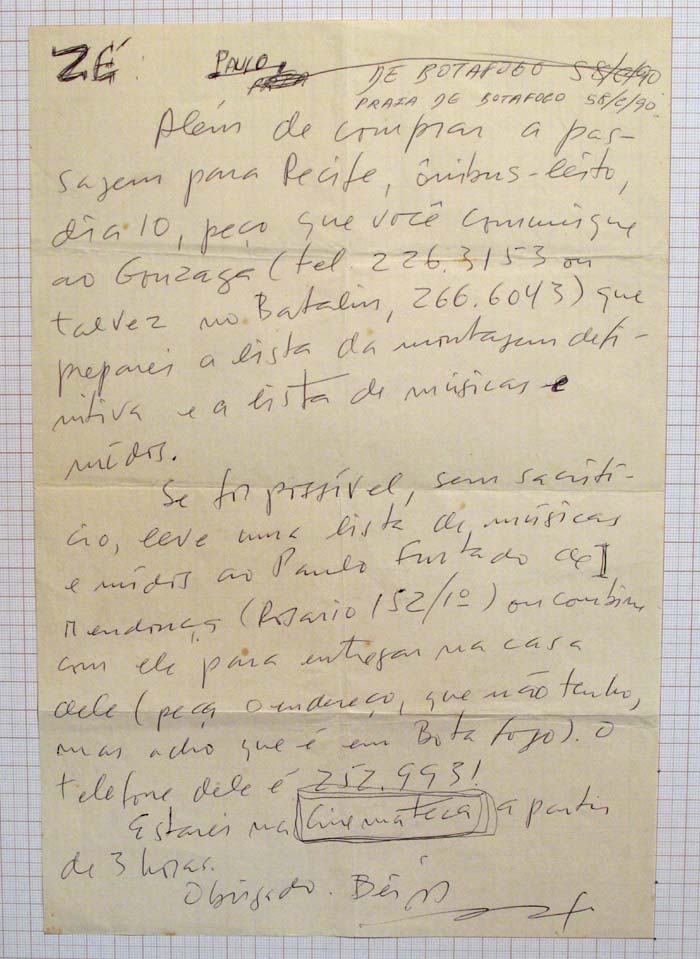 ZÉ:
PAULO
DE BOTAFOGO 58/C/90
PRAIA DE BOTAFOGO 58/C/90
Além de comprar a pas-
sagem para Recife, ônibus-leito,
dia 10, peço que você comunique
ao Gonzaga (tel. 226.3153 ou
talvez no Batalin, 266.6043) que
preparei a lista da montagem defi-
nitiva e a lista de músicas e
ruídos.
Se for possível, sem sacrifí-
cio, leve uma lista de músicas
e ruídos ao Paulo Furtado de
Mendonça (Rosario 152/1º) ou combine
com ele para entregar na casa
dele (peça o endereço, que não tenho,
mas acho que é em Botafogo). O
telefone dele é 252.9931
Estarei na Cinemateca a partir
de 3 horas.
Obrigado.